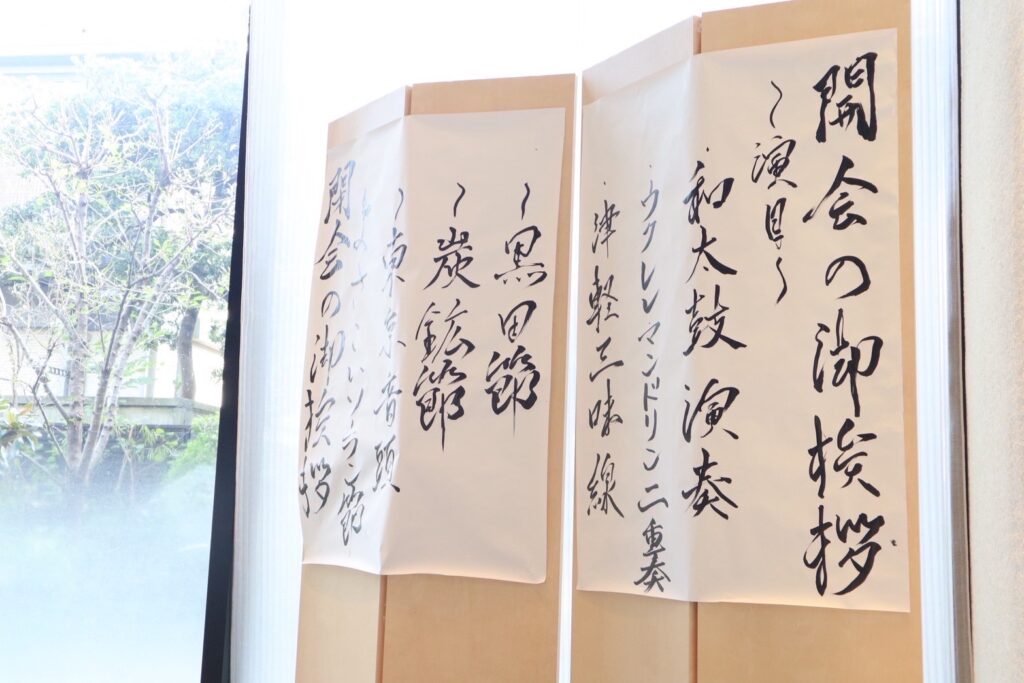 開会の御挨拶
〜演目〜
・和太鼓演奏
・ウクレレマンドリン二重奏
・津軽三味線
〜黒田節
〜炭鉱節
〜東京音頭
ソラン節
閉会の御挨拶